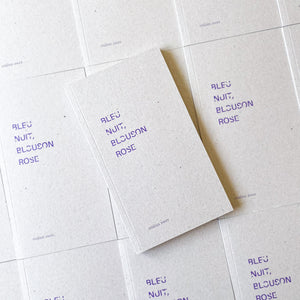 BLEU
NUIT,
BLOUSON
ROSE
BLEU
NUIT,
BLOUSON
ROSE
BLEU
NUIT,
BLOUSON
ROSE
BLEU
NUIT,
BLOUSON
ROSE
BLEU
NUIT,
BLOUSON
ROSE
BLEU